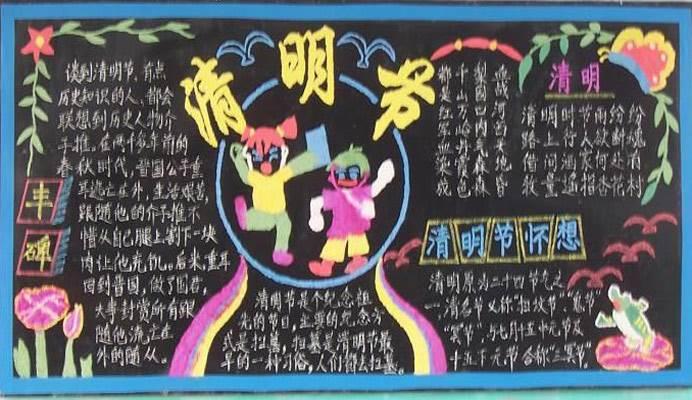 清明节
谈到清明节,有点
历史知识的人,都会
联想到历史人物介
子推。在两千多年前的
春秋时代,晋国公子重
耳逃亡在外,生活艰苦
跟随他的介子推不
惜从自己腿上割下一块
肉让他充饥。后来,重耳
回到晋国,做了国君,
大事封赏所有跟
随他流亡在
外的随从。
丰碑
清明节是个纪念祖
先的节日,主要的纪念方
式是扫墓,扫墓是清明节最
早的一种习俗,人们都去扫墓。
血战河西
梨园口内气森森
千山万岭丹霞色
都是红军血染成
清明
清明时节雨纷纷
路上行人欲断魂
借问酒家何处有
牧童遥指杏花村
清明节怀想
清明原为二十四节气之
一,清名节又称"扫坟节""鬼节"
"冥节",与七月十五中元节及
十五下元节合称"三冥节"。